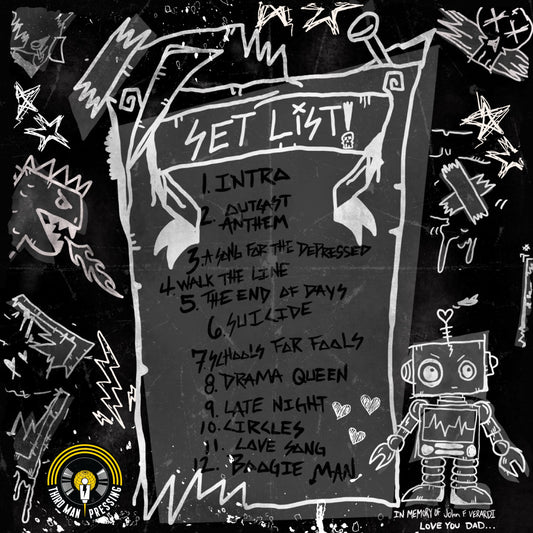 SET LIST!
1. INTRO
2. OUTCAST
ANTHEM
3. A SONG FOR THE DEPRESSED
4. WALK THE LINE
5. THE END OF DAYS
6. SUICIDE
7. SCHOOLS FOR FOOLS
8. DRAMA QUEEN
9. LATE NIGHT
10. CIRCLES
11. LOVE SONG
12. BOOGIE MAN
THIRD MAN PRESSING
IN MEMORY OF John F VERARDI
LOVE YOU DAD...